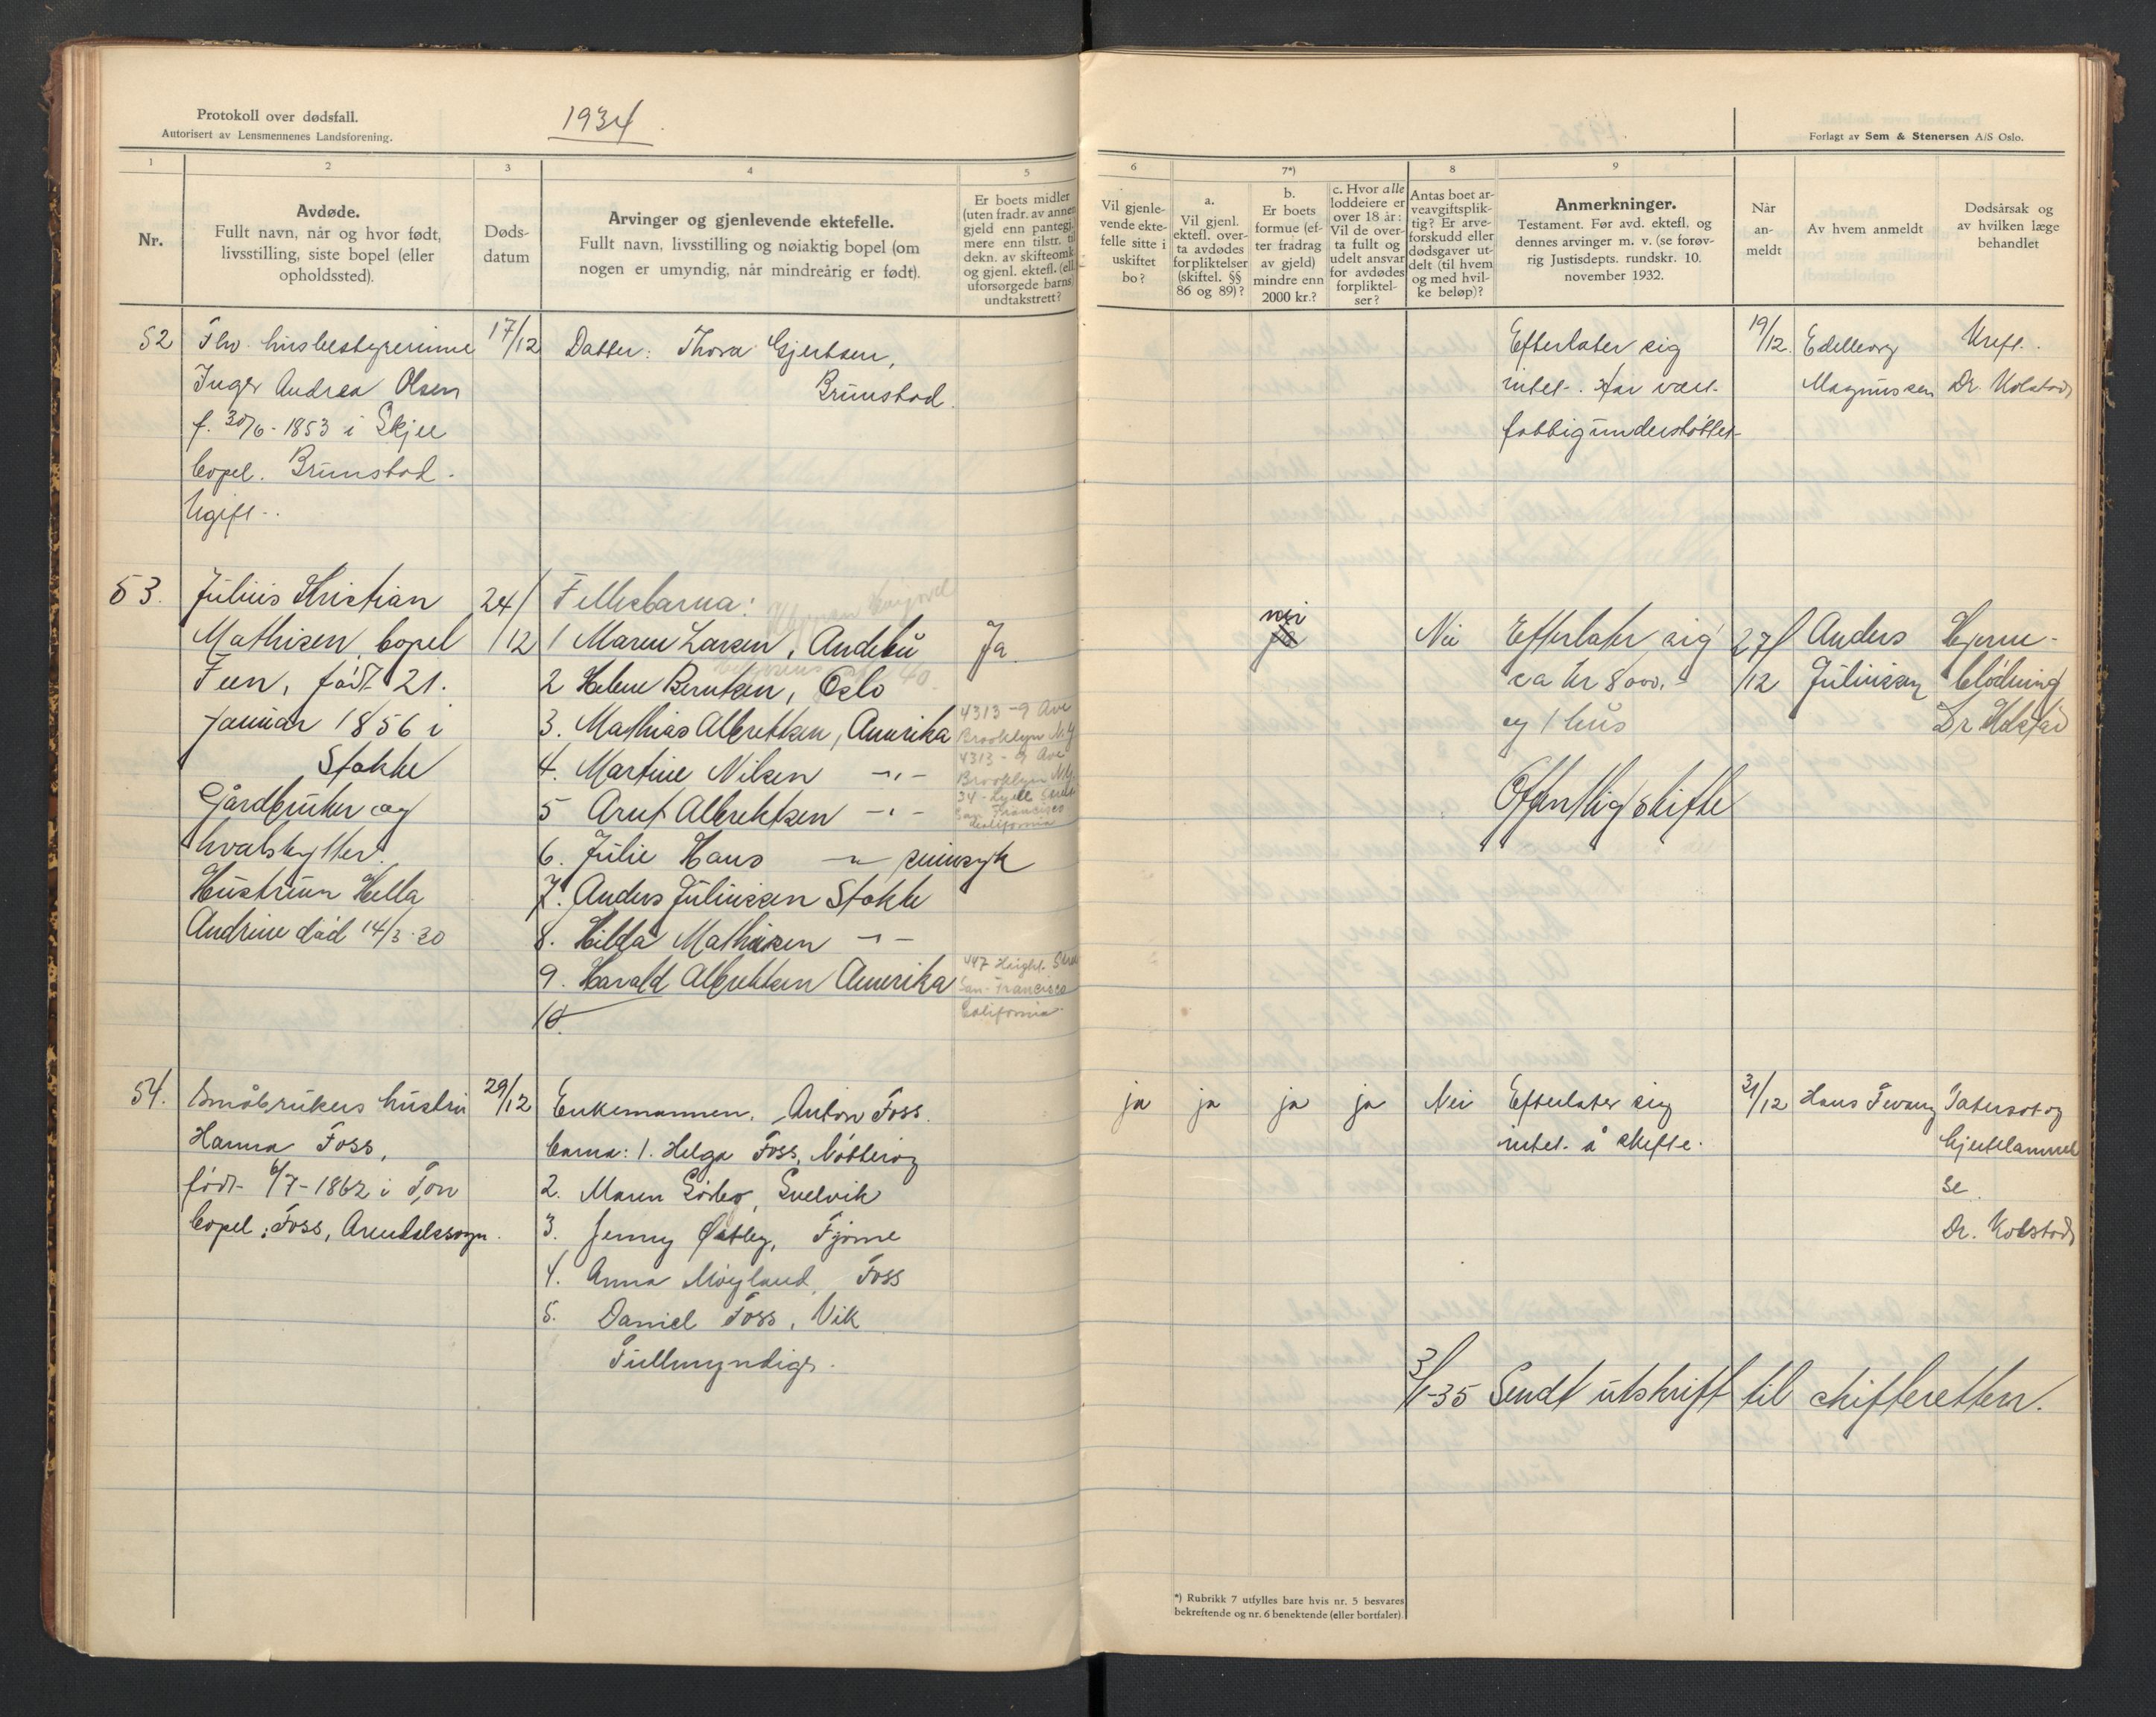 Protokoll over dødsfall.
Autorisert av Lensmennenes Landsforening.
1934
1
2
3
4
5
Nr.
Avdøde.
Fullt navn, når og hvor født,
livsstilling, siste bopel (eller
opholdssted).
Døds-
datum
Arvinger og gjenlevende ektefelle.
Fullt navn, livsstilling og nøiaktig bopel (om
nogen er umyndig, når mindreårig er født).
Er boets midler
(uten fradr. av annen
gjeld enn pantegj.)
mere enn tilstr. til
dekn. av skifteomk.
og gjenl. ektefl. (ell.
uforsørgede barns)
undtakstrett?
52
Fhv. husbestyrerinne
Inger Andrea Olsen
f. 30/6 - 1853 i Skjee
bopel. Brunstad.
Ugift.
17/12
Datter: Thora Gjertsen,
Brunstad.
53.
Julius Kristian
Mathisen, bopel
Feen, født 21.
januar 1856 i
Stokke
Gårdbruker og
hvalskytter.
Hustruen Hella
Andrine død 14/3 30
24/12
Fellesbarna:
1 Maren Larsen, Andebu
2 Helene Berntsen, Oslo
3. Mathias Albrektsen, Amerika
4313 - 9 Ave
Brooklyn N.Y.
4. Martine Nilsen -"-
4313 - 9 Ave
Brooklyn N.Y.
5 Arnt Albrektsen -"-
34 - Lyell Street
San Francisco
California
6. Julie Hans " sinnsyk
7. Anders Juliussen Stokke
8. Hilda Mathisen -"-
9. Harald Albrektsen Amerika
447 Haight Street
San-Francisco
California
10.
Ja
54.
Småbrukers hustru
Hanna Foss,
født 6/7 - 1862 i Ton
bopel: Foss, Arendalssogn.
29/12
Enkemannen, Anton Foss.
barna: 1. Helga Foss, Nøtterøy
2. Maren Sørbø, Svelvik
3. Jenny Østby, Tjøme
4. Anna Møyland, Foss
5. Daniel Foss, Vik
Fullmyndige.
Forlagt av Sem & Stenersen A/S Oslo.
6
7*)
8
9
Vil gjenle-
vende ekte-
felle sitte i
uskiftet
bo?
a.
Vil gjenl.
ektefl. over-
ta avdødes
forpliktelser
(skiftel. §§
86 og 89)?
b.
Er boets
formue (ef-
ter fradrag
av gjeld)
mindre enn
2000 kr.?
c. Hvor alle
loddeiere er
over 18 år:
Vil de over-
ta fullt og
udelt ansvar
for avdødes
forpliktel-
ser?
Antas boet ar-
veavgiftsplik-
tig? Er arve-
forskudd eller
dødsgaver ut-
delt (til hvem
og med hvil-
ke beløp)?
Anmerkninger.
Testament. Før avd. ektefl. og
dennes arvinger m. v. (se forøv-
rig Justisdepts. rundskr. 10.
november 1932.
Når
an-
meldt
Av hvem anmeldt
Dødsårsak og
av hvilken læge
behandlet
Efterlater sig
intet. Har vært
fattigunderstøttet
19/12.
Edelborg
Magnussen
Kreft.
Dr. Kolstad
nei
ja
Nei
Efterlater sig
ca kr 8000.-
og 1 hus
Offentlig skifte
27/12
Anders
Juliussen
Hjerne-
blødning
Dr Kolstad
ja
ja
ja
ja
Nei
Efterlater sig
intet å skifte.
31/12
Hans Tvang
Dr. Kolstad
3/1-35 Sendt utskrift til skifteretten.
*) Rubrikk 7 utfylles bare hvis nr. 5 besvares
bekreftende og nr. 6 benektende (eller bortfaler).